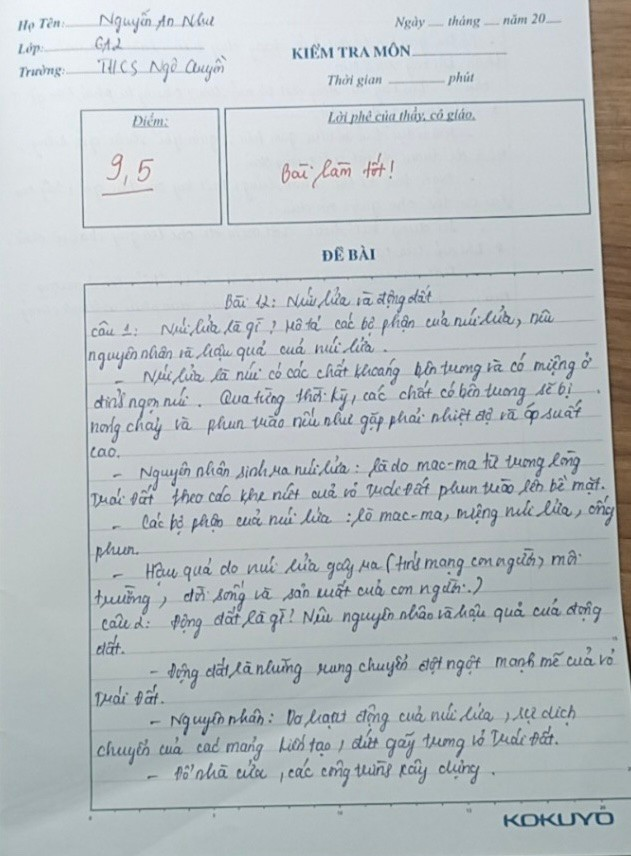 Họ Tên: Nguyễn An Như
Ngày ___ tháng ___ năm 20___
Lớp: 6A2
KIỂM TRA MÔN
Trường: THCS Ngô Quyền
Thời gian ___ phút
Điểm:
Lời phê của thầy, cô giáo.
9,5
Bài làm tốt!
ĐỀ BÀI
Bài 12: Núi lửa và động đất
câu 1: Núi lửa là gì? Mô tả các bộ phận của núi lửa, nêu
nguyên nhân và hậu quả của núi lửa.
- Núi lửa là núi có các chất khoáng bên tương và có miệng ở
đỉnh ngọn núi. Qua từng thời kỳ, các chất có bên tương sẽ bị
nóng chảy và phun trào nếu như gặp phải nhiệt độ và áp suất
cao.
- Nguyên nhân sinh ra núi lửa: là do mac-ma từ tương lòng
Trái Đất theo các khe nứt của vỏ Trái Đất phun trào lên bề mặt.
- Các bộ phận của núi lửa: lò mac-ma, miệng núi lửa, ống
phun.
- Hậu quả do núi lửa gây ra (tính mạng con người, môi
trường, đời sống và sản xuất của con người.)
câu 2: Động đất là gì? Nêu nguyên nhân và hậu quả của động
đất.
- Động đất là những rung chuyển đột ngột mạnh mẽ của vỏ
Trái Đất.
- Nguyên nhân: Do hoạt động của núi lửa, sự dịch
chuyển của các mảng kiến tạo, đứt gãy tương vỏ Trái Đất.
- Đổ nhà cửa, các công trình xây dựng.
KOKUYO